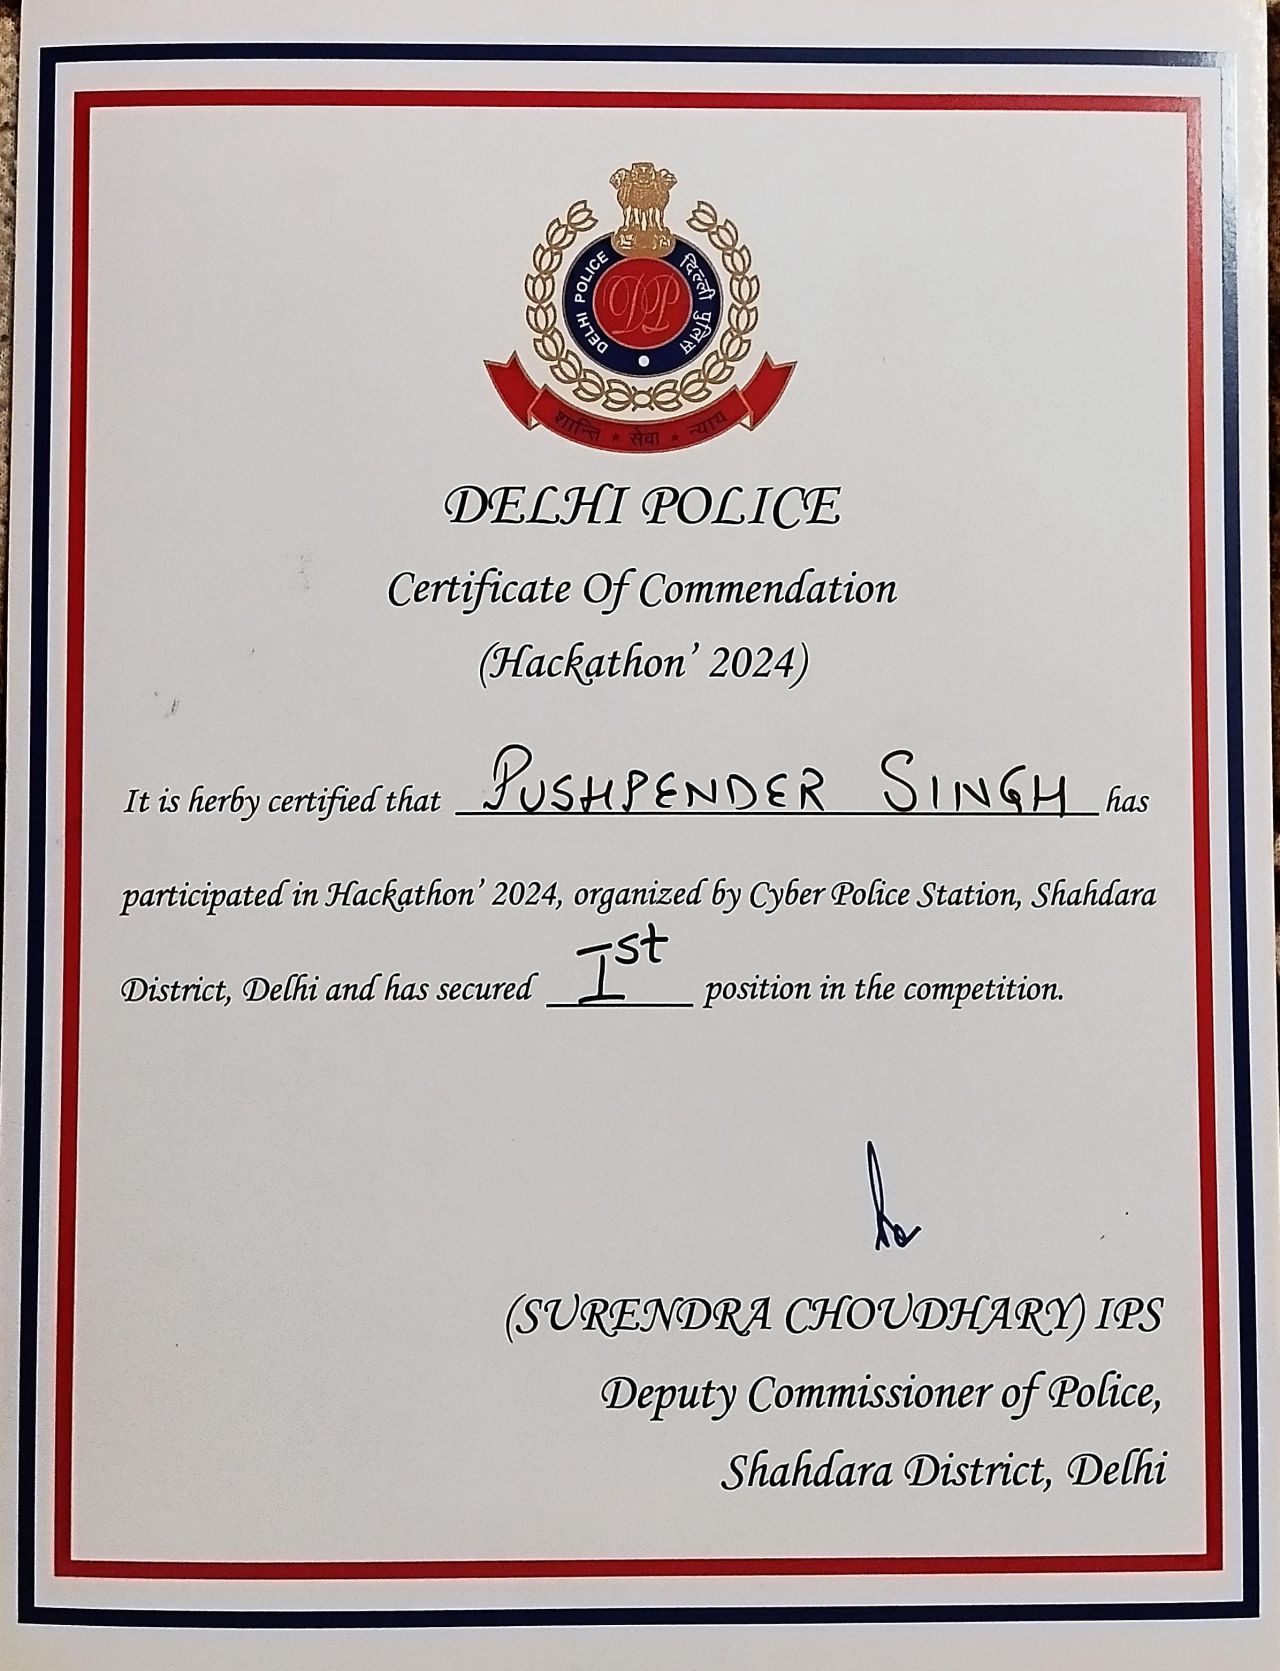 DELHI POLICE
दिल्ली पुलिस
DP
शान्ति ★ सेवा ★ न्याय
DELHI POLICE
Certificate Of Commendation
(Hackathon’ 2024)
It is herby certified that PUSHPENDER SINGH has
participated in Hackathon’ 2024, organized by Cyber Police Station, Shahdara
District, Delhi and has secured Ist position in the competition.
(SURENDRA CHOUDHARY) IPS
Deputy Commissioner of Police,
Shahdara District, Delhi